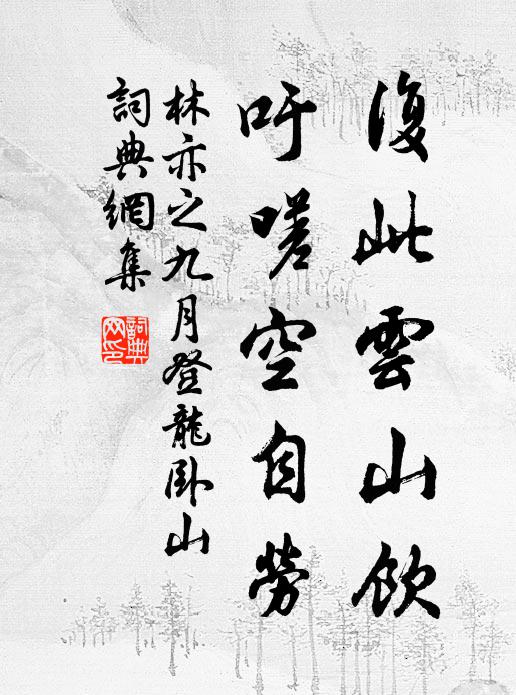 復此雲山飲
吁嗟空自勞
林亦之九月登龍卧山
詞典網集
詞典网印